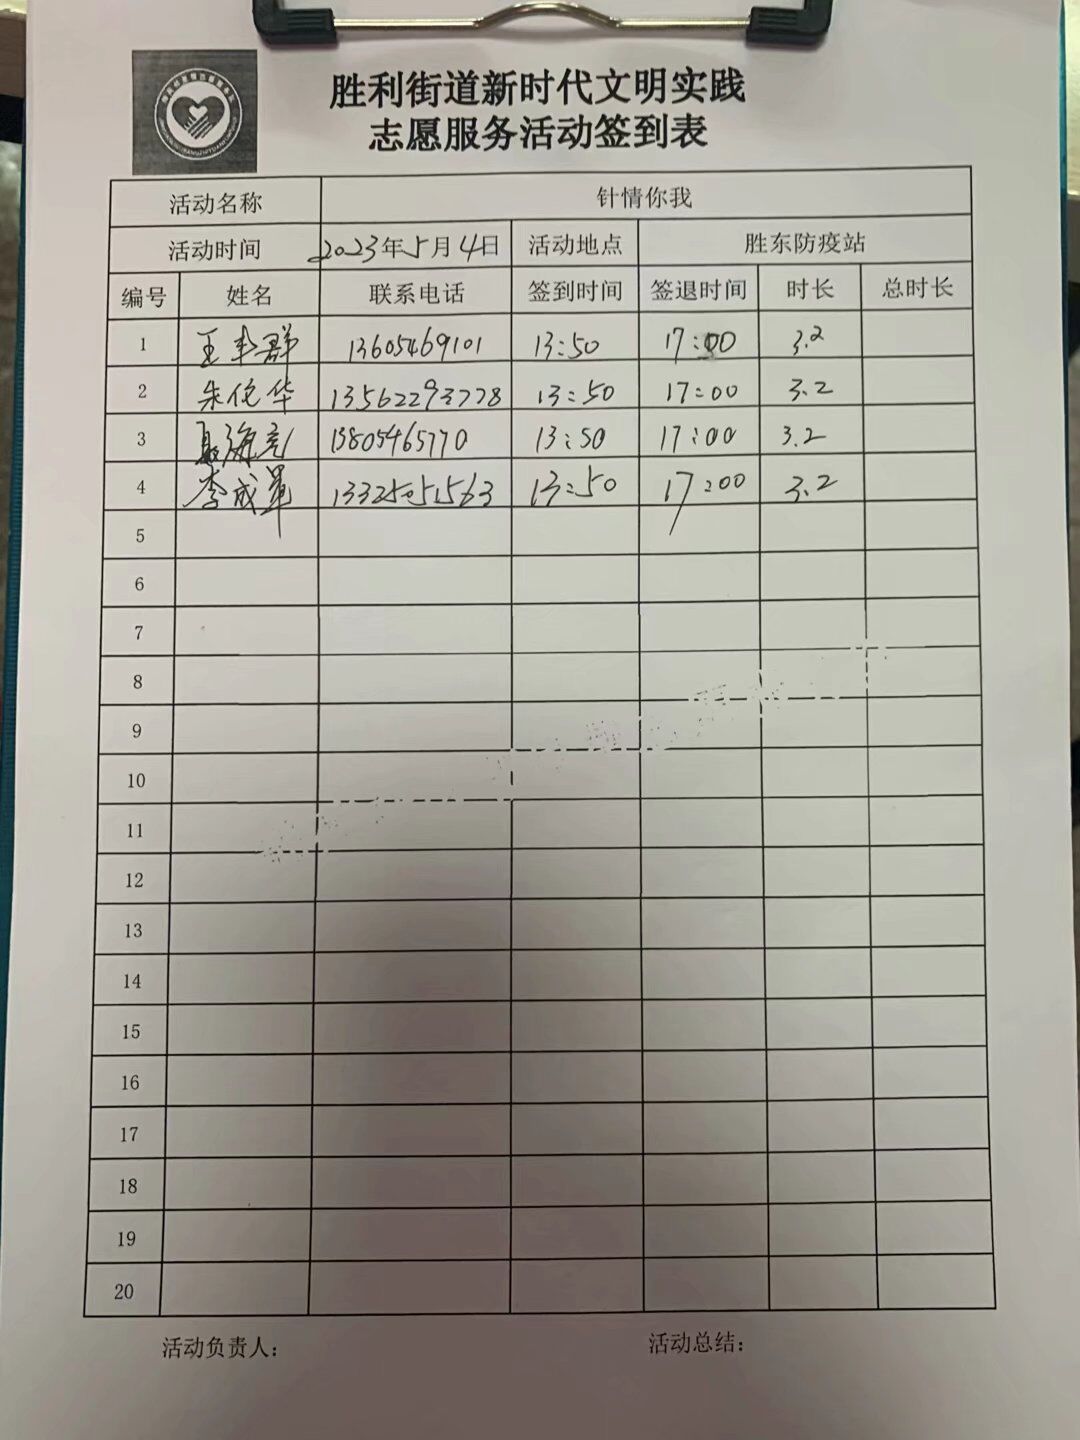 胜利街道新时代文明实践
志愿服务活动签到表
活动名称 针情你我
活动时间 2023年5月4日 活动地点 胜东防疫站
编号 姓名 联系电话 签到时间 签退时间 时长 总时长
1 王 群 13605469101 13:50 17:00 3.2
2 朱 华 13562293778 13:50 17:00 3.2
3 海亮 13805465770 13:50 17:00 3.2
4 李成军 13:50 17:00 3.2
5
6
7
8
9
10
11
12
13
14
15
16
17
18
19
20
活动负责人: 活动总结: